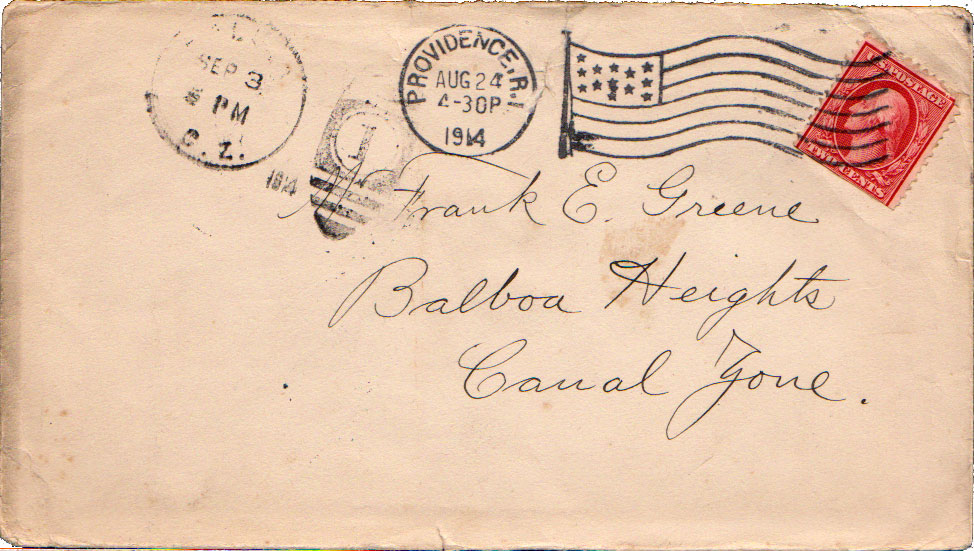 SEP 3
PM
C. Z.
1914
1
PROVIDENCE, R.I.
AUG 24
4-30P
1914
U.S. POSTAGE
TWO CENTS
M Frank E. Greene
Balboa Heights
Canal Zone.